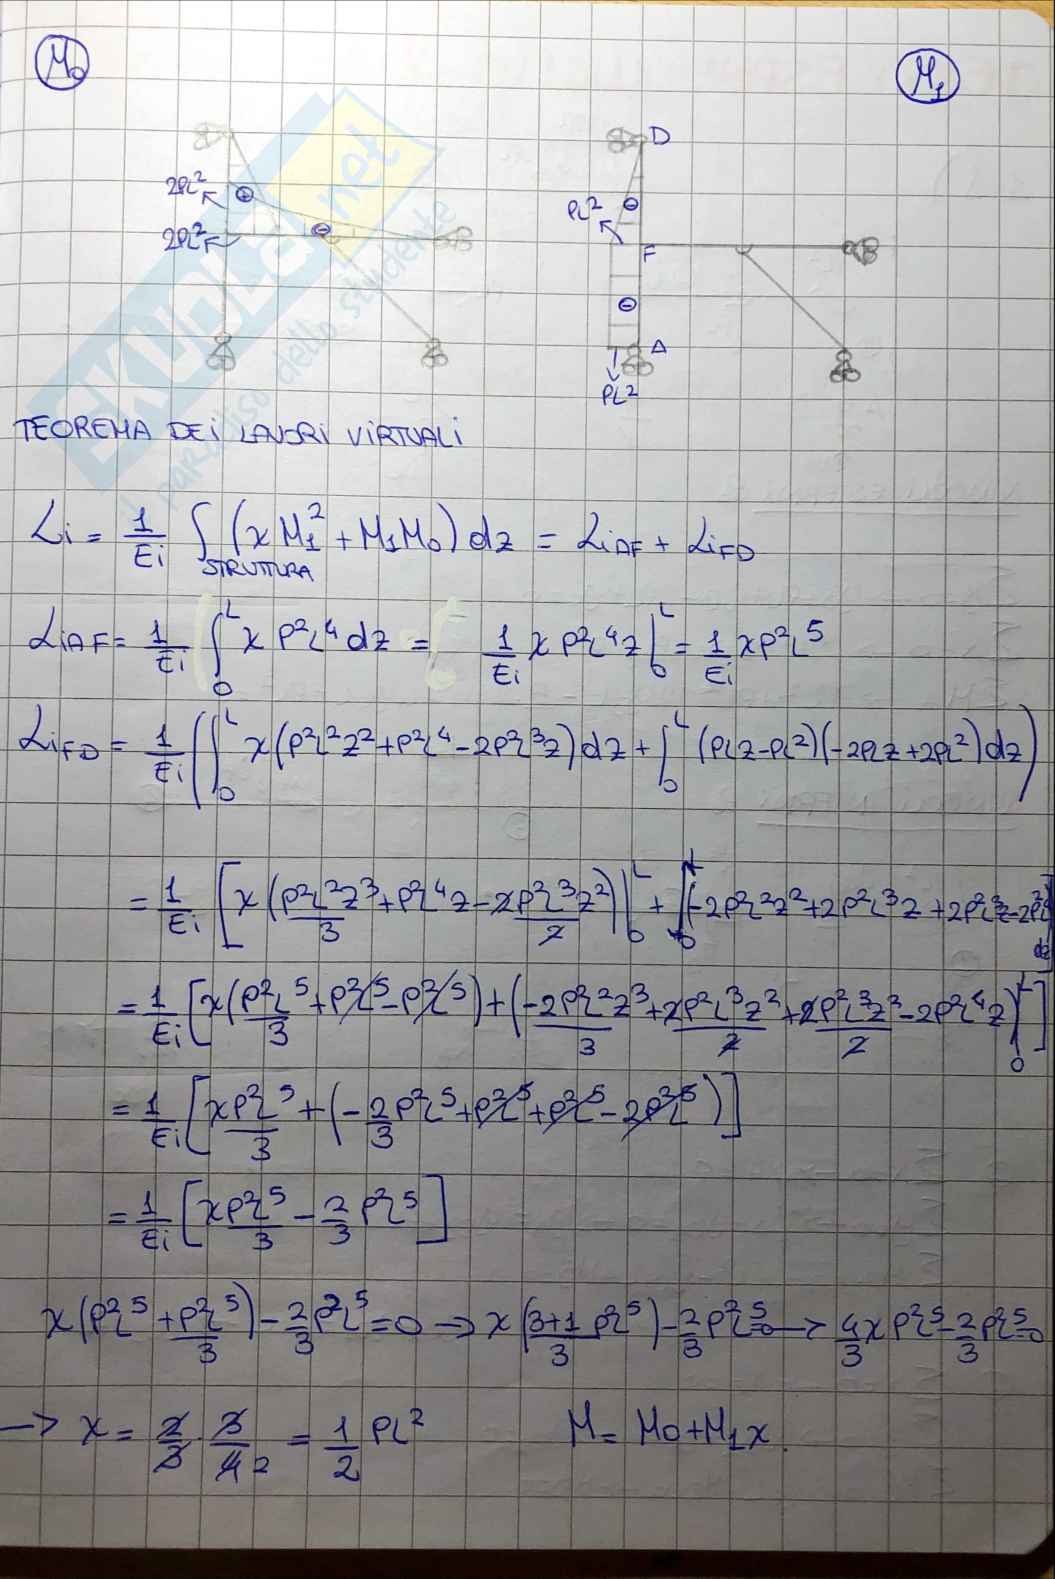 M₀ M₁
D
2PL² ⊕ PL² ⊖
2PL² ⊖ B F B
⊖
A
PL²
TEOREMA DEI LAVORI VIRTUALI
Li = 1/Ei ∫STRUTTURA (x M₁² + M₁M₀) dz = LiAF + LiFD
LiAF = 1/Ei ∫₀ᴸ x P²L⁴ dz = 1/Ei x P²L⁴z |₀ᴸ = 1/Ei x P²L⁵
LiFD = 1/Ei ( ∫₀ᴸ x(P²L²z² + P²L⁴ - 2P²L³z) dz + ∫₀ᴸ (PLz - PL²)(-2PLz + 2PL²) dz )
= 1/Ei [ x( P²L²z³/3 + P²L⁴z - 2P²L³z²/2 ) |₀ᴸ + ∫₀ᴸ (-2P²L²z² + 2P²L³z + 2P²L³z - 2P²L⁴ dz ]
= 1/Ei [ x( P²L⁵/3 + P²L⁵ - P²L⁵ ) + ( -2P²L²z³/3 + 2P²L³z²/2 + 2P²L³z²/2 - 2P²L⁴z )₀ᴸ ]
= 1/Ei [ xP²L⁵/3 + ( -2/3 P²L⁵ + P²L⁵ + P²L⁵ - 2P²L⁵ ) ]
= 1/Ei [ xP²L⁵/3 - 2/3 P²L⁵ ]
x( P²L⁵ + P²L⁵/3 ) - 2/3 P²L⁵ = 0 → x( 3+1/3 P²L⁵ ) - 2/3 P²L⁵ = 0 → 4/3 x P²L⁵ - 2/3 P²L⁵ = 0
→ x = 2/3 · 3/4 2 = 1/2 PL² M = M₀ + M₁x
SKUOLA.net
il paradiso dello studente